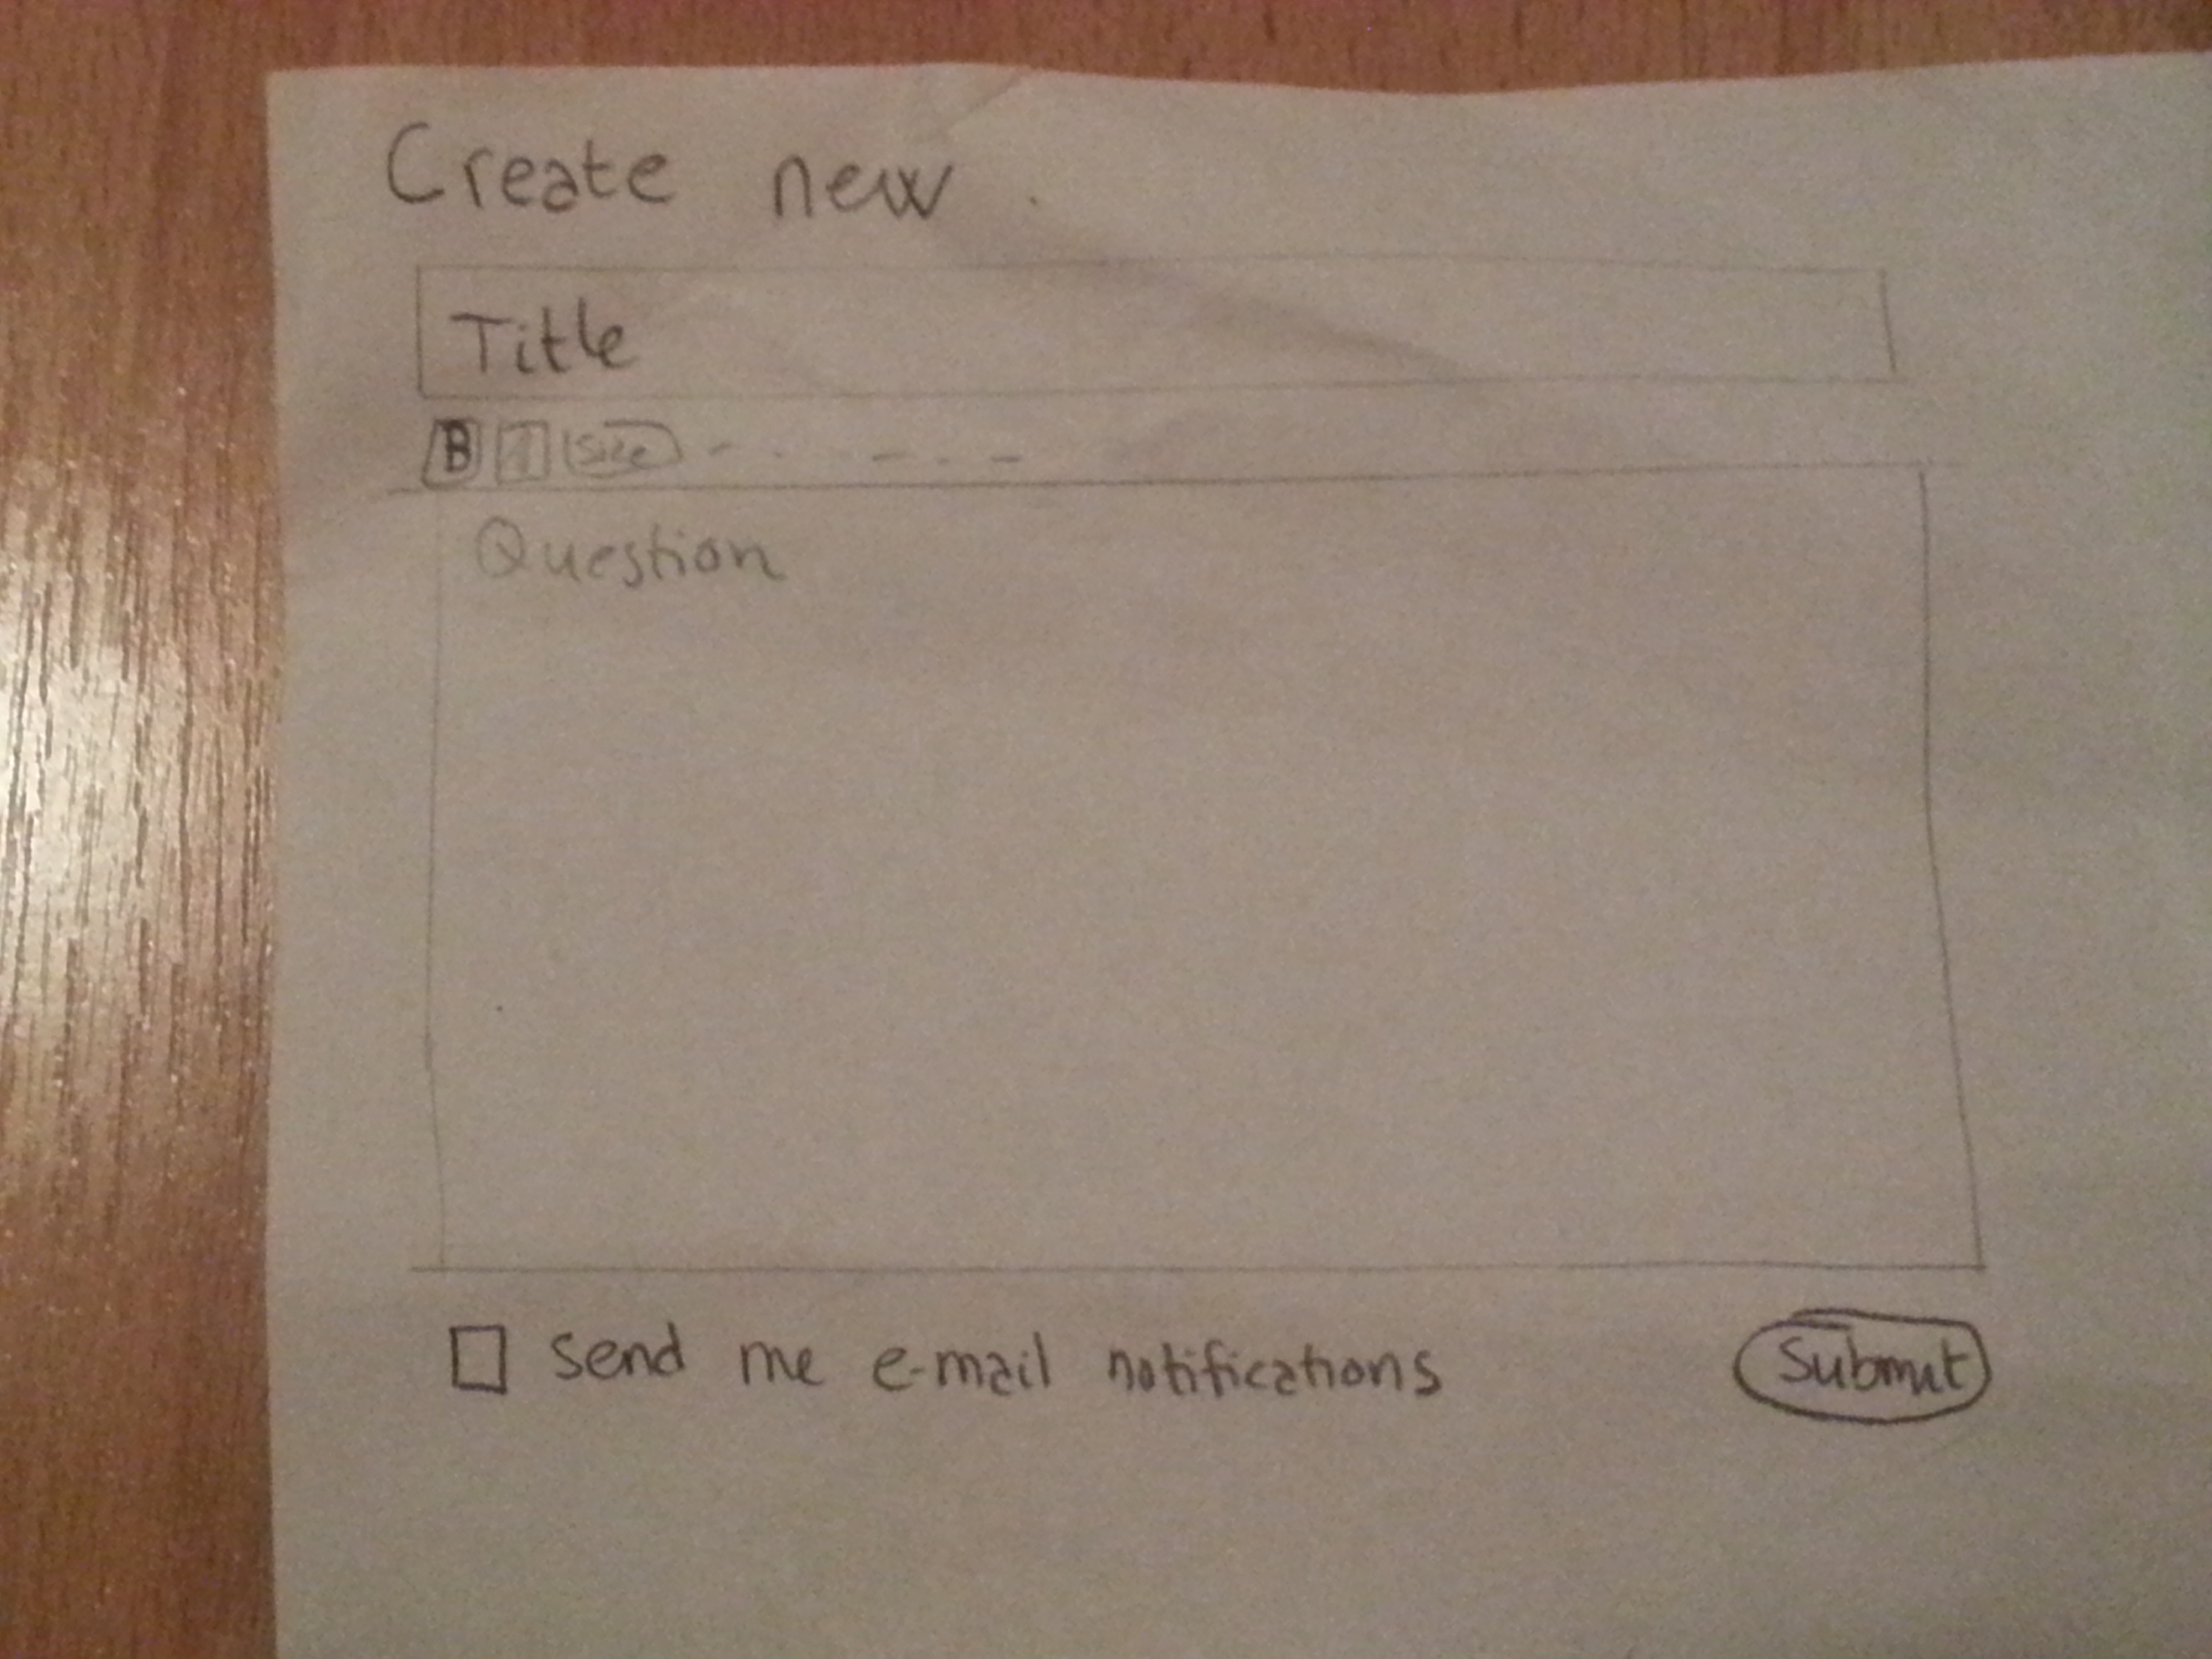 Create new
Title
B I Size
Question
send me e-mail notifications
Submit